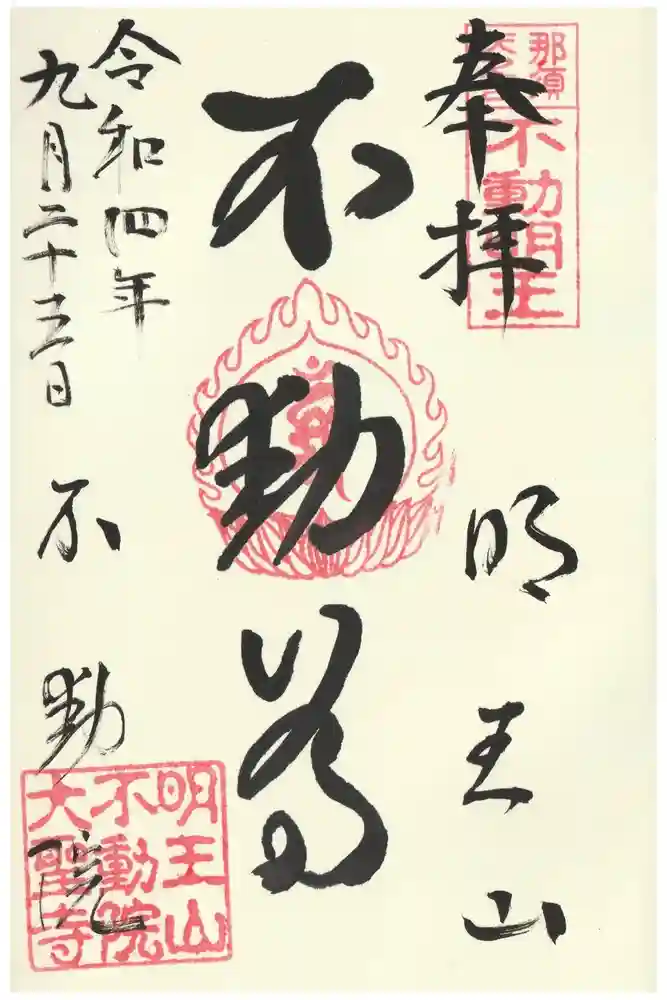 奉拝
那須
不動明王
明王山
不動尊
令和四年
九月二十三日
不動院
明王山
不動院
大聖寺